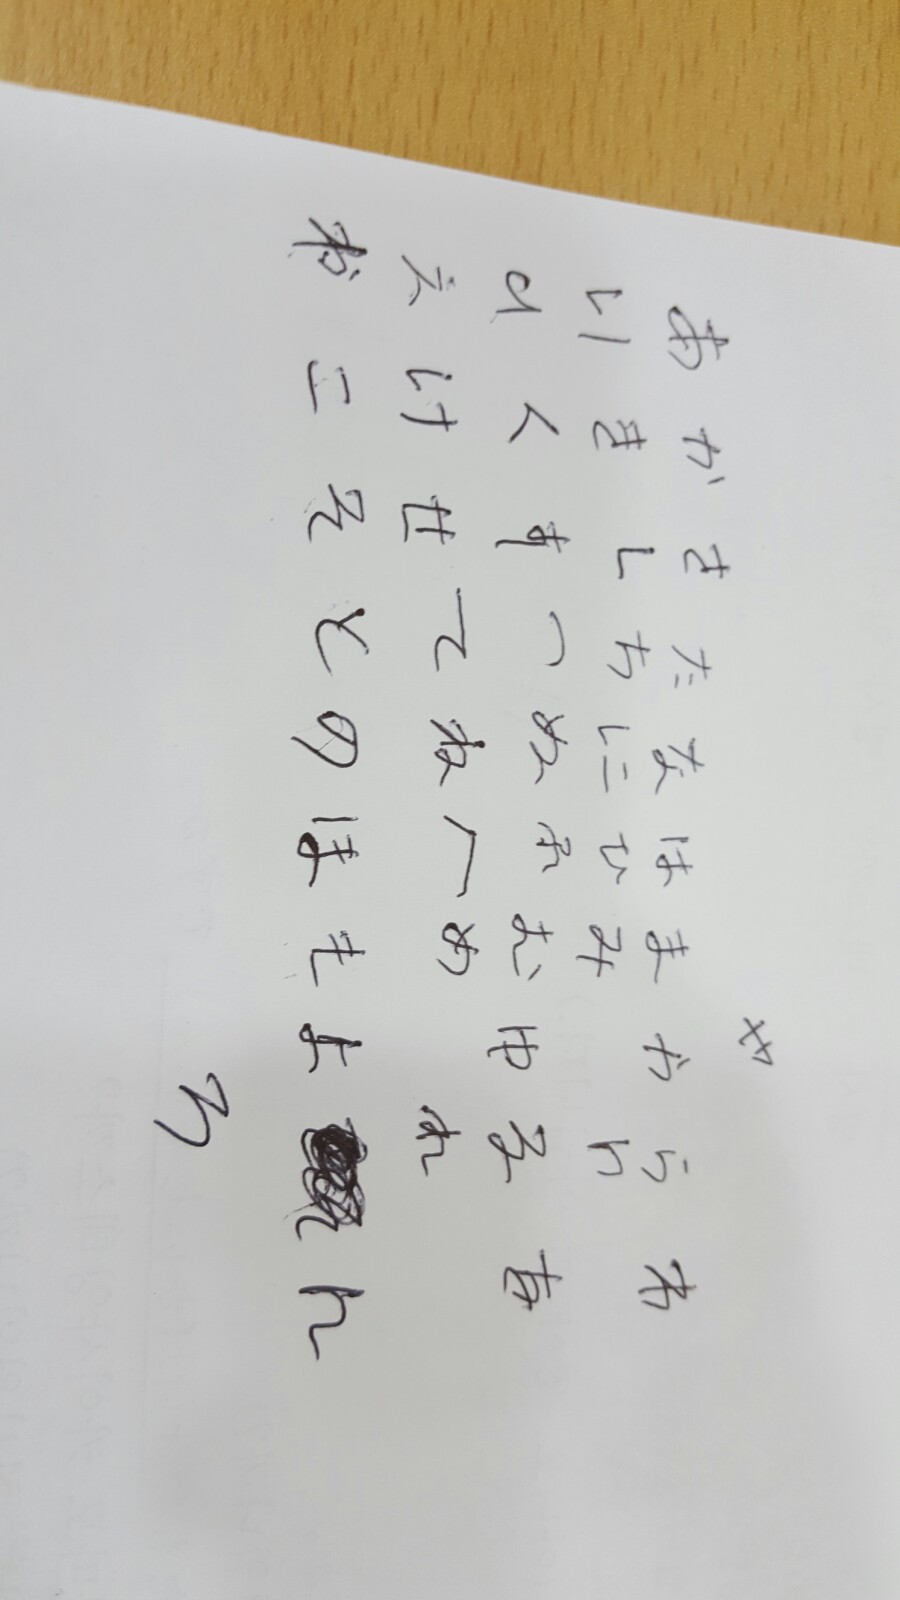 や
あかさたなはまやらわ
いきしちにひみり
うくすつぬふむゆるを
えけせてねへめれ
おこそとのほもよん
ろ